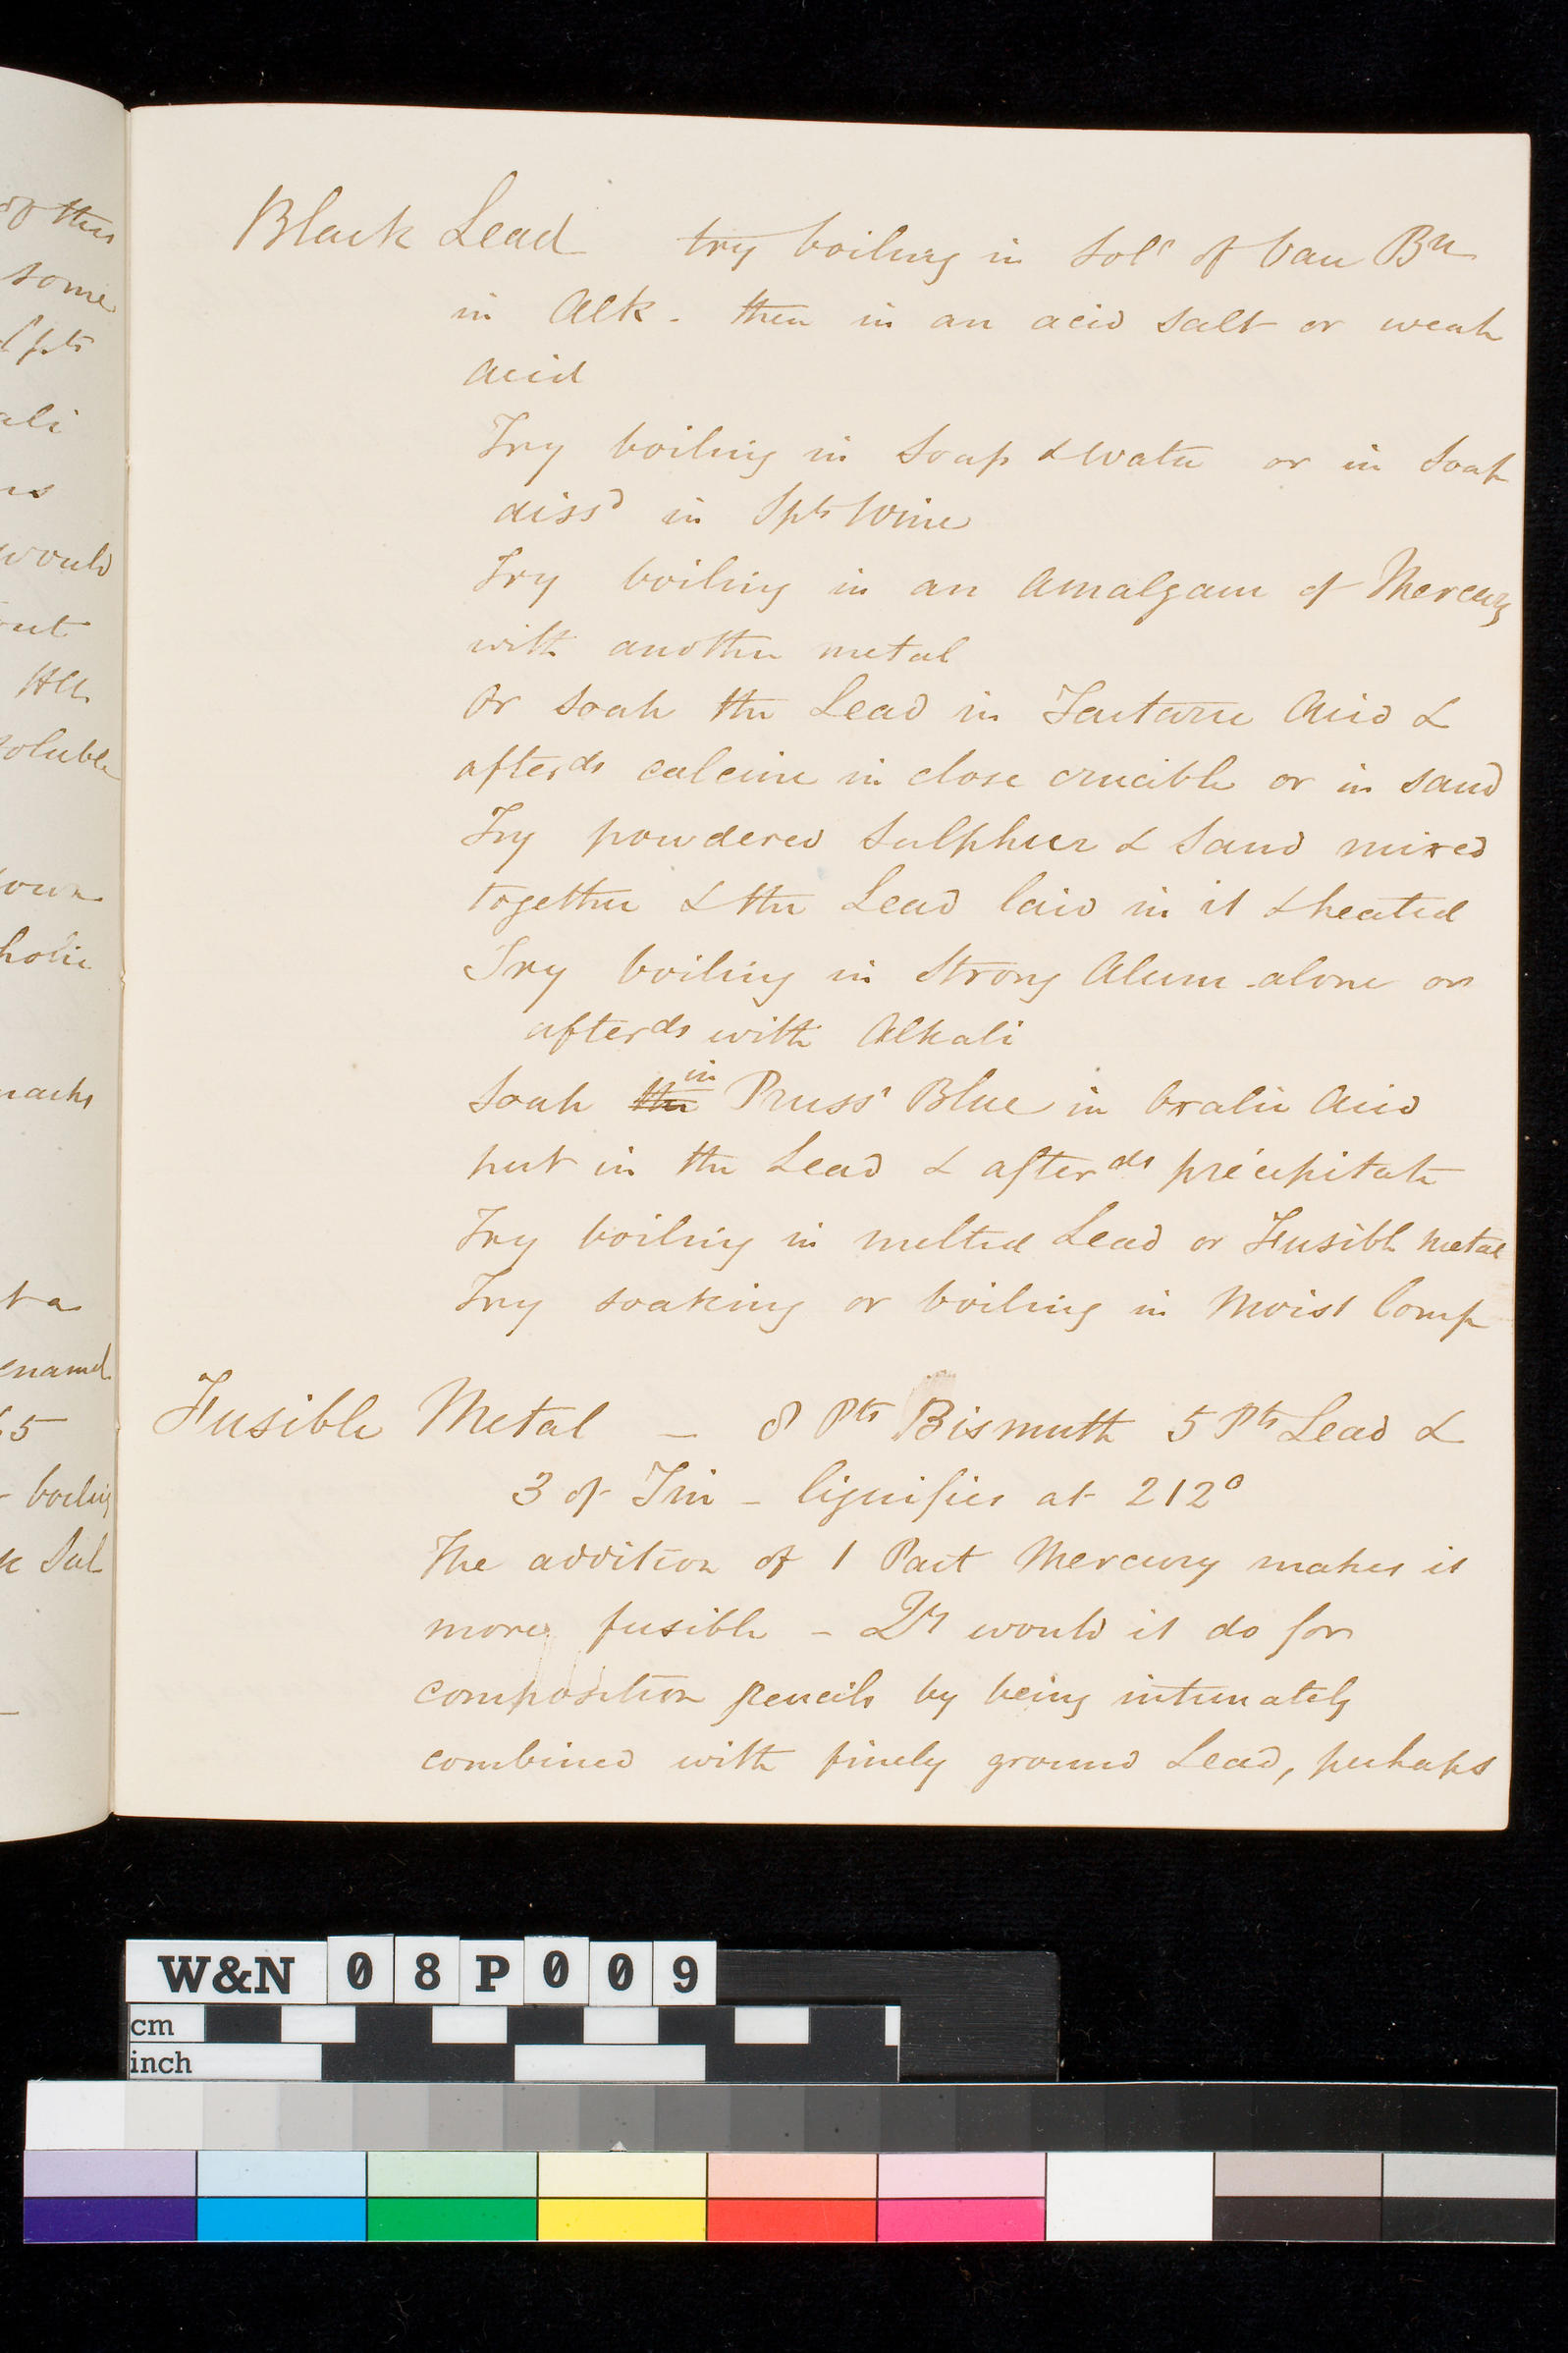 of this
some
pts
ali
would
out
HCl
soluble
own
holic
t a
enamel
5
boiling
Sul
Black Lead try boiling in Soln of Van Bn
in Alk - then in an acid salt or weak
acid
Try boiling in Soap & Water or in Soap
dissd in Spts Wine
Try boiling in an Amalgam of Mercury
with another metal
Or soak the Lead in Tartaric Acid &
afterds calcine in close crucible or in sand
Try powdered Sulphur & Sand mixed
together & the Lead laid in it & heated
Try boiling in Strong Alum alone or
afterds with Alkali
Soak the in Pruss' Blue in Oxalic Acid
put in the Lead & afterds precipitate
Try boiling in melted Lead or Fusible metal
Try soaking or boiling in Moist Comp
Fusible Metal - 8 Pts Bismuth 5 Pts Lead &
3 of Tin - liquifies at 212°
The addition of 1 Part Mercury makes it
more fusible - Qy would it do for
composition pencils by being intimately
combined with finely ground Lead, perhaps
W&N 08P009
cm
inch